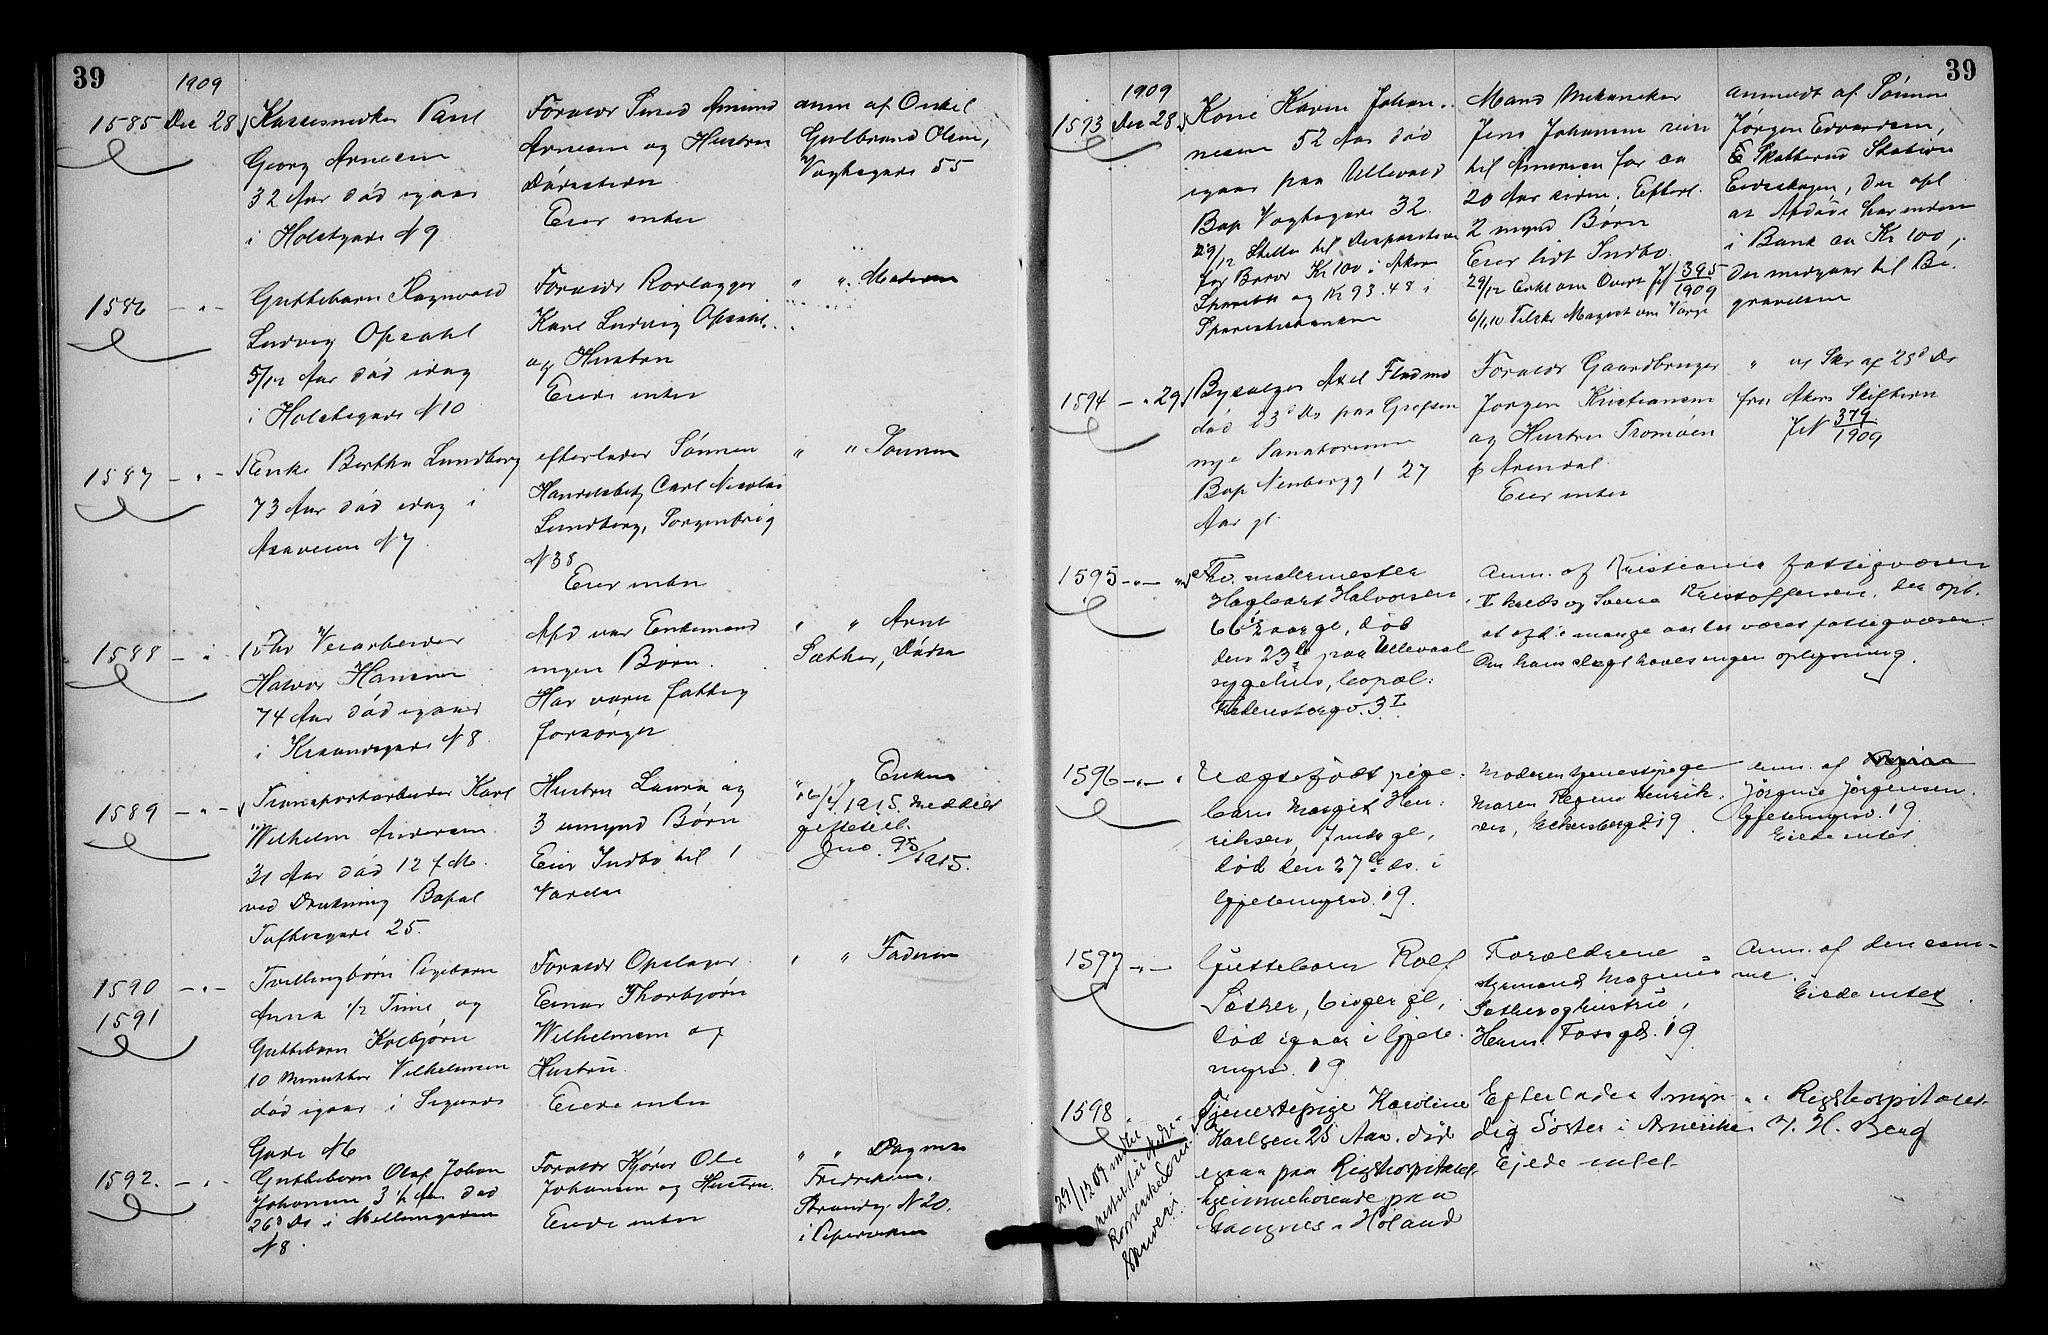 39
1909
1585 Dec 28 Kassesnedker Paul
Georg Arnesen
32 Aar død igaar
i Holstgade N 9
Forældr Smed Amund
Arnesen og Hustru
Eier intet
anm af Onkel
Gulbrand Olsen,
Vogtsgade 55
1586 - " - Guttebarn Ragnvald
Ludvig Opsahl
5/12 Aar død idag
i Holstsgade N 10
Forældr Rørlægger
Karl Ludvig Opsahl
og Hustru
Eiede intet
" " Moderen
1587 - " - Enke Bertha Lundberg
73 Aar død idag i
N 7
efterlader Sønnen
Handelsbetj Carl Nicolai
Lundberg, Sorgenfrig
N 38
Eier intet
" " Sønnen
1588 - " - Fhv Veiarbeider
Halvor Hansen
74 Aar død igaar
i Krsandsgade N 8
Afd var Enkemand
ingen Børn.
Har været fattig
forsørget
" " Arne
Sæther, Dødsa
1589 - " - Transportarbeider Karl
Wilhelm Andersen
31 Aar død 12 f M.
ved Drukning Bopæl
Toftesgade 25.
Hustru Laura og
3 umynd Børn
Eier Indbo til 1
Værdi
" " Enken
16/4 1915 meddelt
gifteseel.
Jno. 95/1915.
1590 - " - Tvillingbørn Pigebarn
1591 Anna 1/2 Time og
Guttebarn Kolbjørn
10 Minutter Wilhelmsen
død igaar i Sigurds
Gade N 6
Forældr Opslager
Einar Thorbjørn
Wilhelmsen og
Hustru
Eiede intet
" " Faderen
1592. - " - Guttebarn Olaf Johan
Johansen 3 1/2 Aar død
26d Ds i Møllergaden
N 8.
Forældr Kjører Ole
Johansen og Hustru.
Eiede intet
" " Dagmar
Fredriksen,
Strandg N 20.
i Pipervieken
39
1909
1593 Dec 28 Kone Karen Johan-
nesen 52 Aar død
igaar paa Ullevaal
Bop Vogtsgade 32.
29/12 Skiller til Disposition
for Borer Kr 100 i Akers
og Kr 93.48 i
Sparestuebanken
Mand Mekaniker
Jens Johansen reist
til Amerika for ca
20 Aar siden. Efterl.
2 mynd Børn
Eier lidt Indbo
29/12 Erkl om Overt JN 395/1909
6/1.10 Tilskr Magist om Værge
anmeldt af Sønnen
Jørgen Edvardsen,
Skotterud Station
Eidskogen, der opl
at Afdøde har inden
i Bank ca Kr 100,
der medgaar til Be-
gravelsen
1594 - " 29 Bysælger Axel Flødmo
død 23d Ds paa Grefsen
nye Sanatorium
Bop Nenbergg 1 27
Aar gl.
Forældr Gaardbruger
Jørgen Kristiansen
og Hustru Tromøen
p Arendal
Eier intet
" ved Skr af 25d Ds
fra Akers Skifteret
JN 379/1909
1595 - " - " Fhv. malermester
Hagbart Halvorsen,
66 1/2 aar gl, død
den 23de paa Ullevaal
sygehus, bopæl:
3 I
Anm. af Kristiania fattigvæsen
V kreds og Sverre Kristoffersen, der opl.
at afd i mange aar har været fattigvæsen
Om hans slægt haves ingen oplysning.
1596 - " - " Uægtefødt pige-
barn Margit Hen-
riksen, 7 mdr gl,
død den 27de ds. i
Gjetemyrsv. 19.
Moderen tjenestepige
Maren Regine Henrik-
sen, Eckersbergd 19
Anm. af
Jørgine Jørgensen
Gjetemyrsv. 19.
Eiede intet.
1597 - " - Guttebarn Rolf
Sæther, 6 uger gl,
død igaar i Gjete-
myrsv. 19
Forældrene
styrmand Magnus
Sæther og hustru,
Herm. Fossgd. 19
Anm. af den sam-
me.
Eiede intet.
1598 " " Tjenestepige Karoline
Karlsen 25 Aar. død
igaar paa Rigshospitalet
hjemmehørende paa
i Høland
Efterlader 1 myn
dig Søster i Amerika
Ejede intet
" " Rigshospitalet
v. H. Berg
29/12 09
Romerike
Skriveri